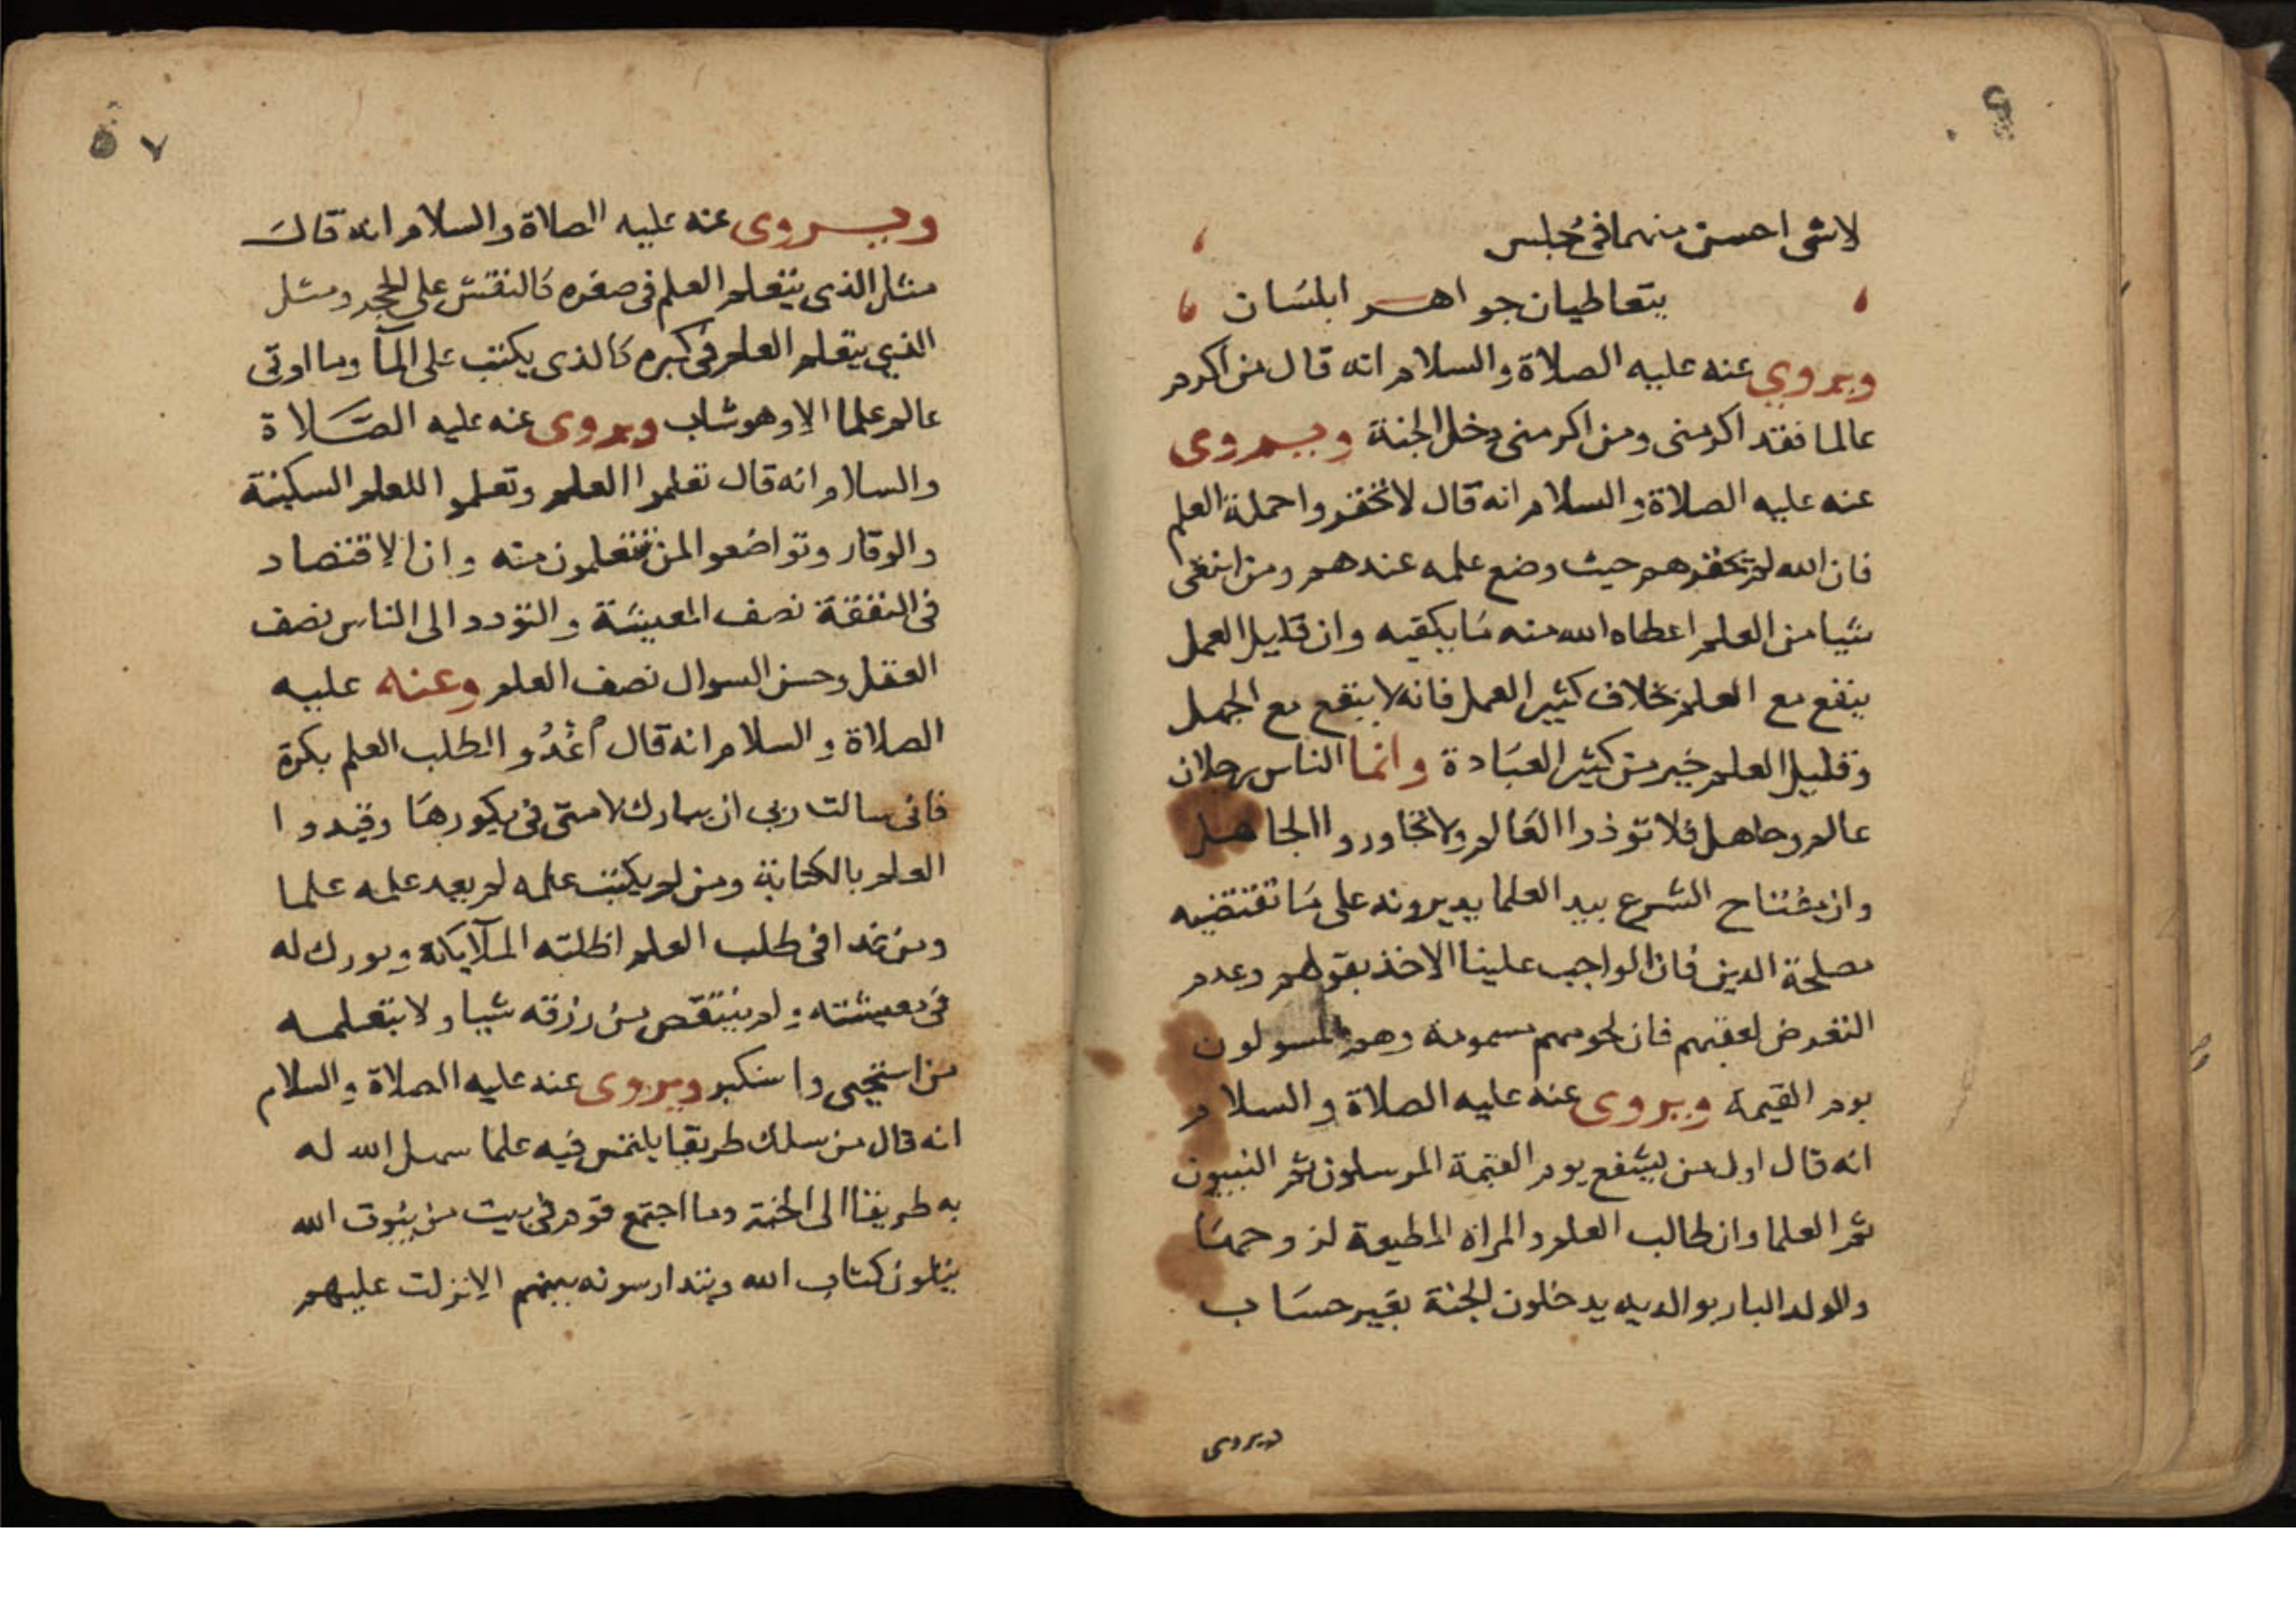 لاشى احسن منهما فى مجلس
يتعاطيان جواهر ابلسان
ويروي عنه عليه الصلاة والسلام انه قال من اكرم
عالما فقد اكرمنى ومن اكرمنى دخل الجنة ويروى
عنه عليه الصلاة والسلام انه قال لا تحقروا حملة العلم
فان الله لم يحقرهم حيث وضع علمه عندهم ومن ابتغى
شيا من العلم اعطاه الله منه ما يكفيه وان قليل العمل
ينفع مع العلم بخلاف كثير العمل فانه لا ينفع مع الجهل
وقليل العلم خير من كثير العبادة وانما الناس رجلان
عالم وجاهل فلا توذوا العالم ولا تجاوروا الجاهل
وان مفتاح الشرع بيد العلما يديرونه على ما تقتضيه
مصلحة الدين فان الواجب علينا الاخذ بقولهم وعدم
التعرض لعقبهم فان لحومهم مسمومة وهم المسولون
يوم القيمة ويروى عنه عليه الصلاة والسلام
انه قال اول من يشفع يوم القيمة المرسلون ثم النبيون
ثم العلما وان طالب العلم والمراة المطيعة لزوجها
والولد البار بوالديه يدخلون الجنة بغير حساب
ويروى
٧
ويروى عنه عليه الصلاة والسلام انه قال
مثل الذى يتعلم العلم فى صغره كالنقش على الحجر ومثل
الذي يتعلم العلم فى كبره كالذى يكتب على المآ وما اوتى
عالم علما الا وهو شاب ويروى عنه عليه الصلاة
والسلام انه قال تعلموا العلم وتعلموا للعلم السكينة
والوقار وتواضعوا لمن تتعلمون منه وان الاقتصاد
فى النفقة نصف المعيشة والتودد الى الناس نصف
العقل وحسن السوال نصف العلم وعنه عليه
الصلاة والسلام انه قال اغدوا لطلب العلم بكرة
فانى سالت ربى ان يبارك لامتى فى بكورها وقيدوا
العلم بالكتابة ومن لم يكتب علمه لم يعد علمه علما
ومن غدا فى طلب العلم اظلته الملآيكة وبورك له
فى معيشته ولم ينتقص من رزقه شيا ولا يتعلمه
من استحيى واستكبر ويروى عنه عليه الصلاة والسلام
انه قال من سلك طريقا يلتمس فيه علما سهل الله له
به طريقا الى الجنة وما اجتمع قوم فى بيت من بيوت الله
يتلون كتاب الله ويتدارسونه بينهم الا نزلت عليهم